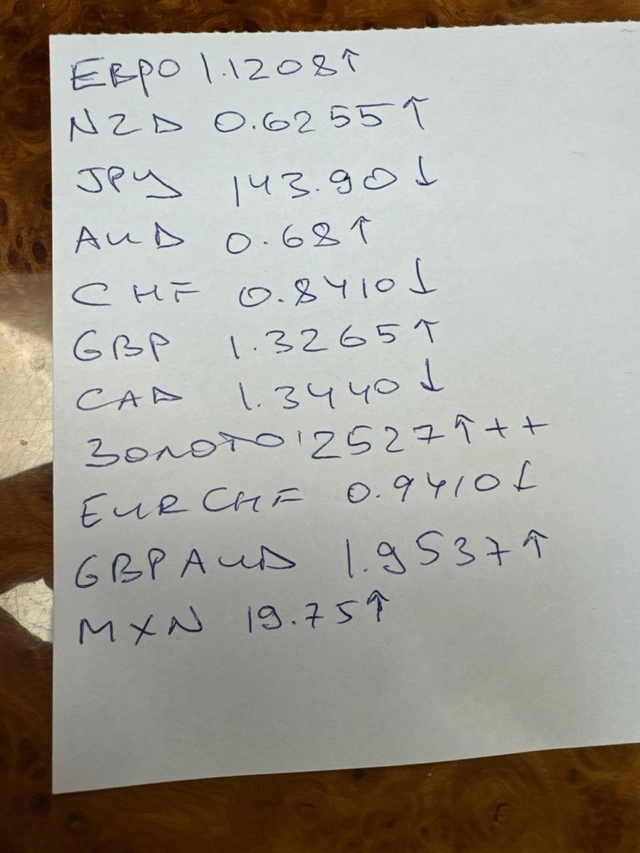 ЕВРО 1.1208↑
NZD 0.6255↑
JPY 143.90↓
AUD 0.68↑
CHF 0.8410↓
GBP 1.3265↑
CAD 1.3440↓
ЗОЛОТО 2527↑++
EURCHF 0.9410↓
GBPAUD 1.9537↑
MXN 19.75↑